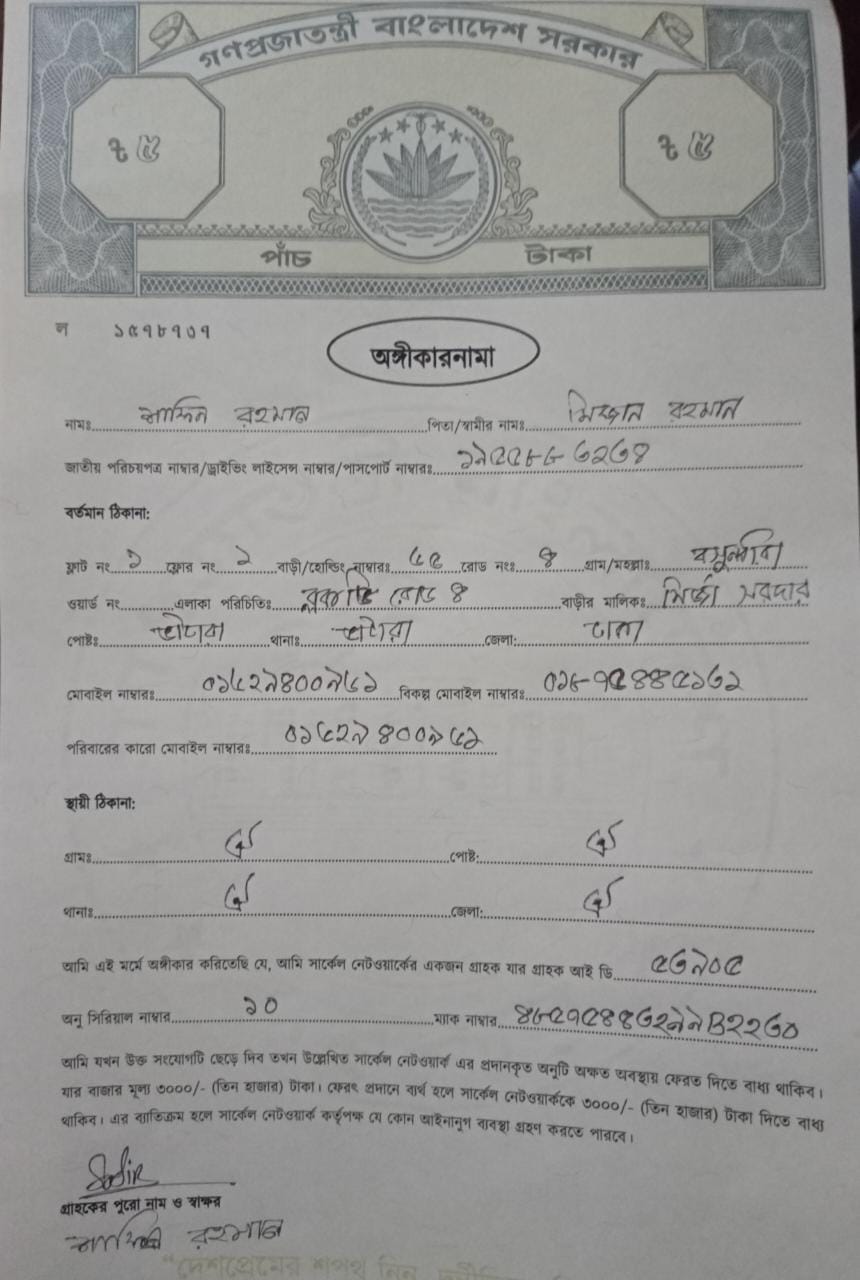 গণপ্রজাতন্ত্রী বাংলাদেশ সরকার
৳ ৫ ৳ ৫
পাঁচ টাকা
ল ১৫৭৮৭০৭
অঙ্গীকারনামা
নামঃ রহমান পিতা/স্বামীর নামঃ মিজান রহমান
জাতীয় পরিচয়পত্র নাম্বার/ড্রাইভিং লাইসেন্স নাম্বার/পাসপোর্ট নাম্বারঃ
বর্তমান ঠিকানা:
ফ্লাট নং ১ ফ্লোর নং ১ বাড়ী/হোল্ডিং নাম্বারঃ ৫৫ রোড নংঃ ৪ গ্রাম/মহল্লাঃ বসুন্ধরা
ওয়ার্ড নং এলাকা পরিচিতিঃ রোড ৪ বাড়ীর মালিকঃ মির্জা সরদার
পোষ্টঃ থানাঃ জেলা: ঢাকা
মোবাইল নাম্বারঃ ০১৬২৯৪০০৯৬১ বিকল্প মোবাইল নাম্বারঃ
পরিবারের কারো মোবাইল নাম্বারঃ ০১৬২৯৪০০৯৬১
স্থায়ী ঠিকানা:
গ্রামঃ ঐ পোষ্ট: ঐ
থানাঃ ঐ জেলা: ঐ
আমি এই মর্মে অঙ্গীকার করিতেছি যে, আমি সার্কেল নেটওয়ার্কের একজন গ্রাহক যার গ্রাহক আই ডি ৫৩৯০৫
অনু সিরিয়াল নাম্বার ১০ ম্যাক নাম্বার
আমি যখন উক্ত সংযোগটি ছেড়ে দিব তখন উল্লেখিত সার্কেল নেটওয়ার্ক এর প্রদানকৃত অনুটি অক্ষত অবস্থায় ফেরত দিতে বাধ্য থাকিব।
যার বাজার মূল্য ৩০০০/- (তিন হাজার) টাকা। ফেরৎ প্রদানে ব্যর্থ হলে সার্কেল নেটওয়ার্ককে ৩০০০/- (তিন হাজার) টাকা দিতে বাধ্য
থাকিব। এর ব্যতিক্রম হলে সার্কেল নেটওয়ার্ক কর্তৃপক্ষ যে কোন আইনানুগ ব্যবস্থা গ্রহণ করতে পারবে।
গ্রাহকের পুরো নাম ও স্বাক্ষর
রহমান
"দেশপ্রেমের শপথ নিন,